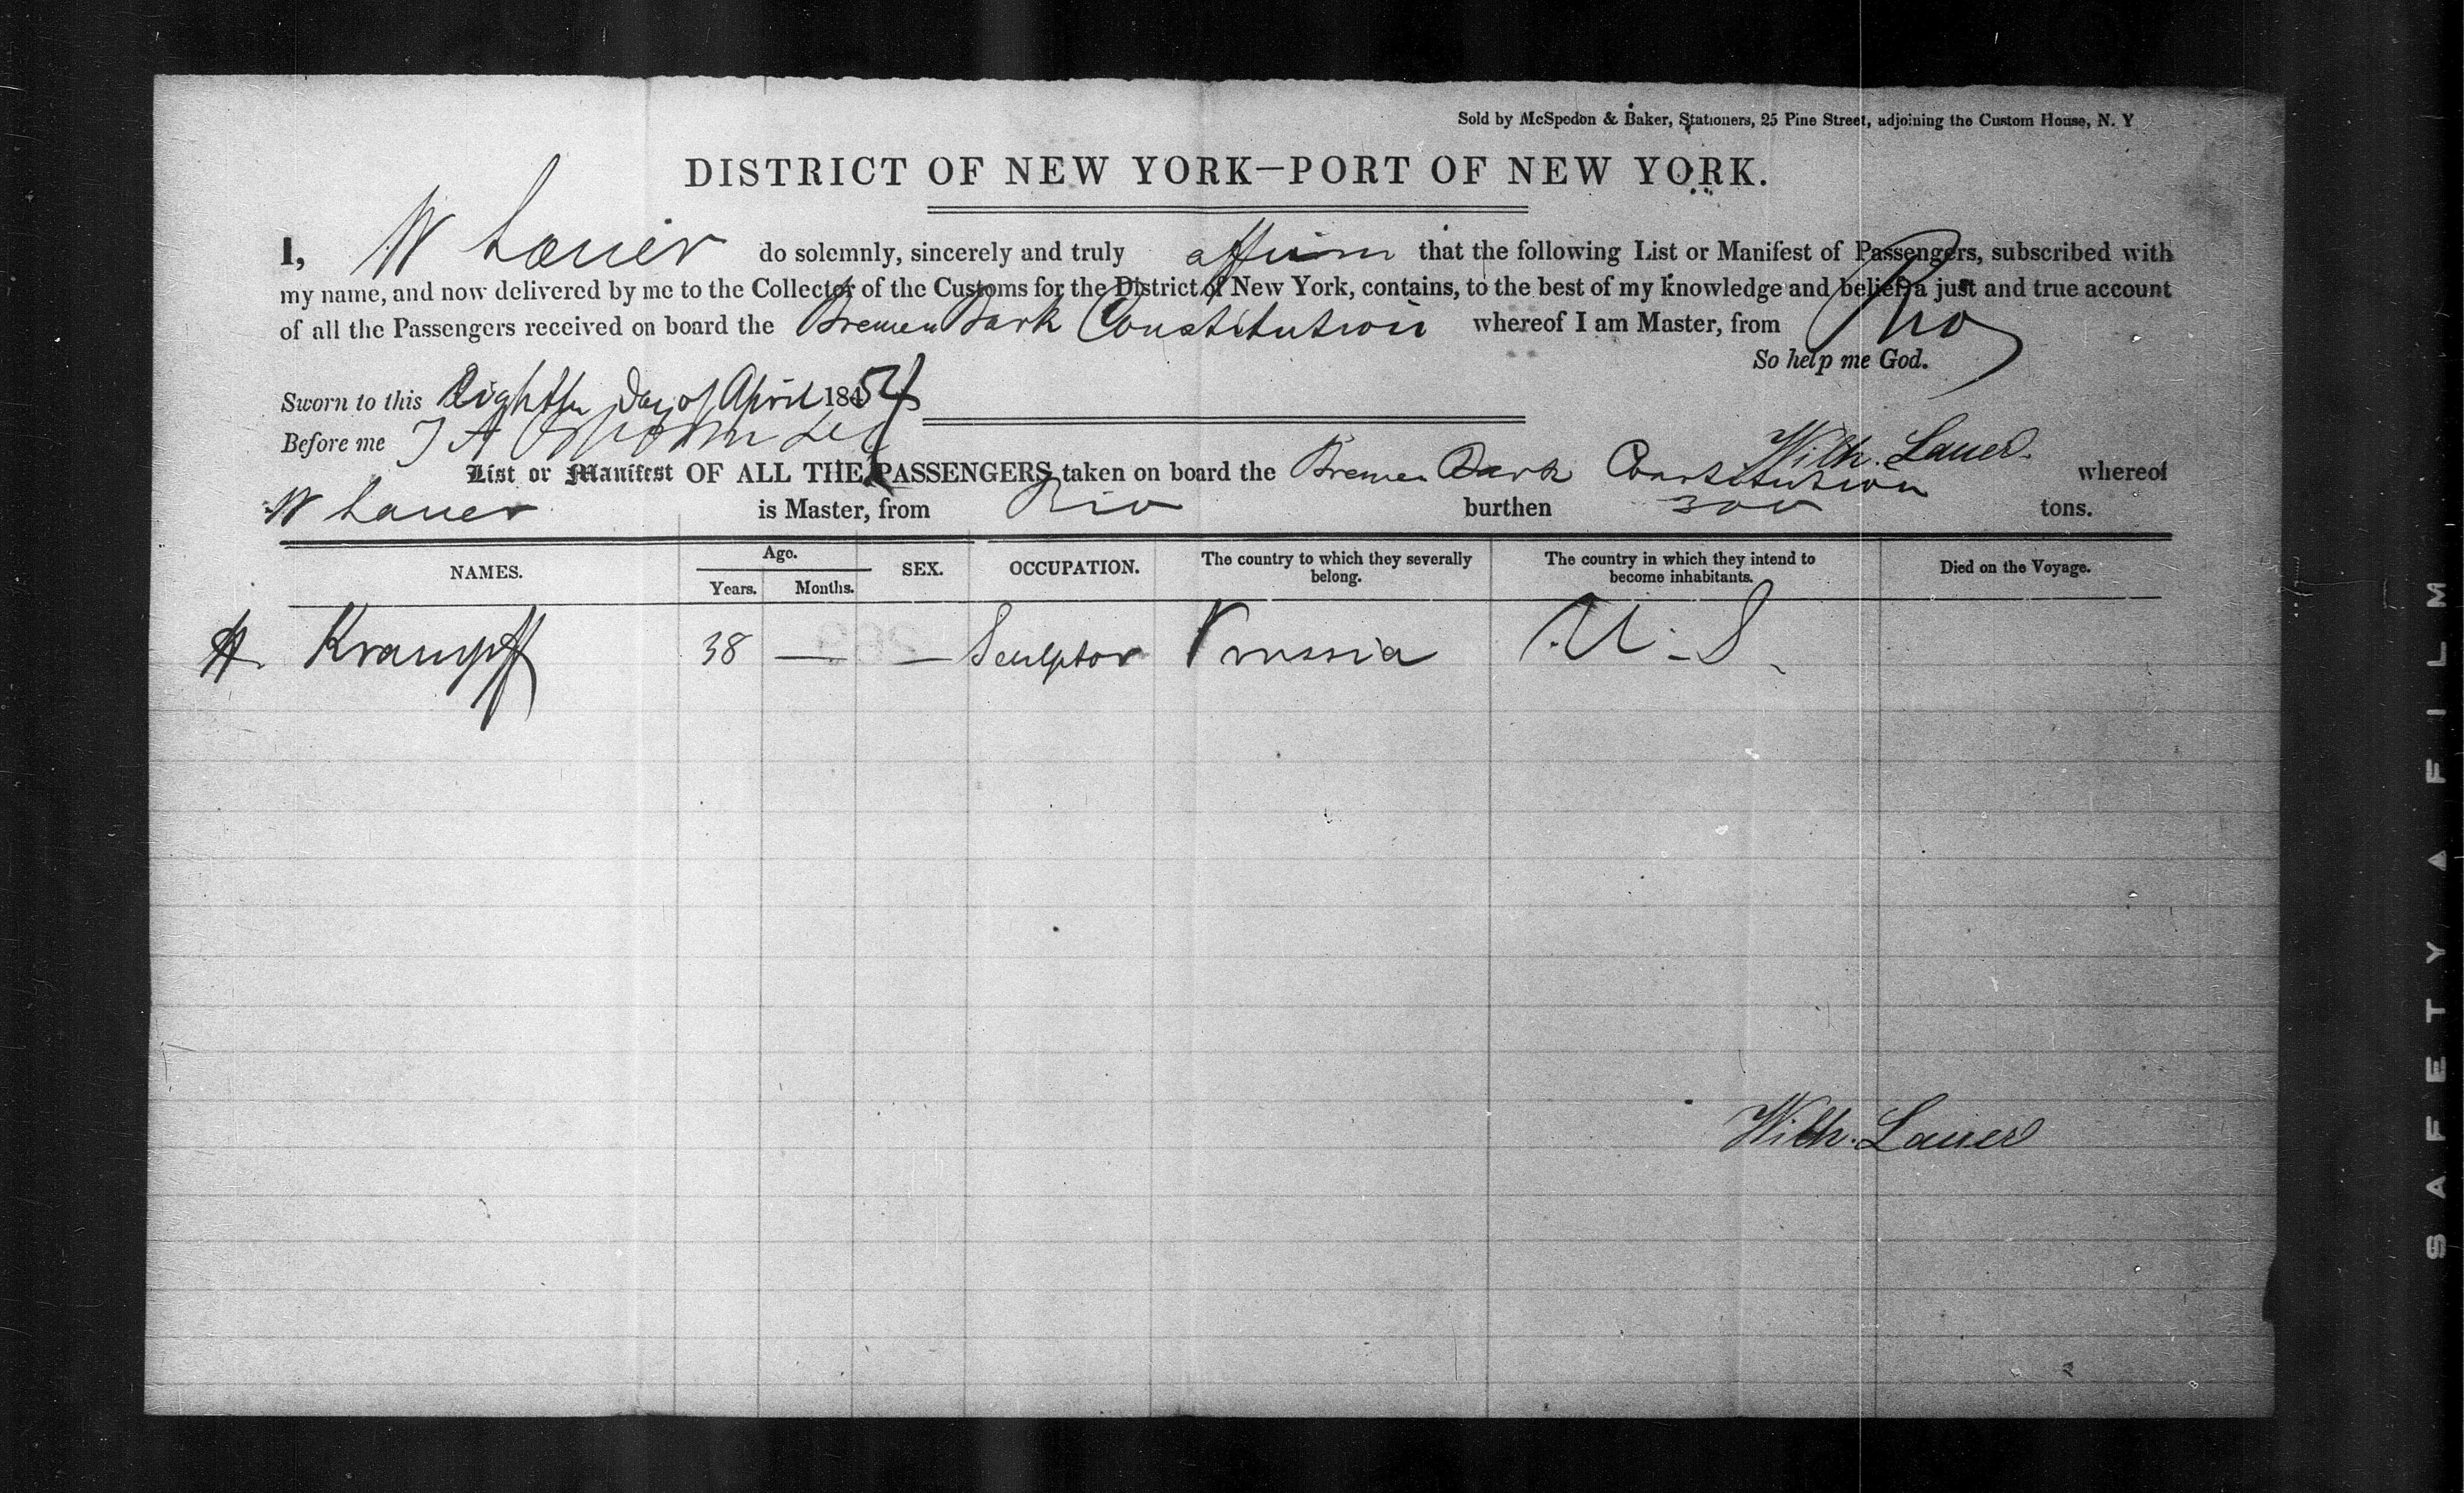 Sold by McSpedon & Baker, Stationers, 25 Pine Street, adjoining the Custom House, N. Y
DISTRICT OF NEW YORK—PORT OF NEW YORK.
I, W Lauer do solemnly, sincerely and truly affirm that the following List or Manifest of Passengers, subscribed with
my name, and now delivered by me to the Collector of the Customs for the District of New York, contains, to the best of my knowledge and belief, a just and true account
of all the Passengers received on board the Bremen Bark Constitution whereof I am Master, from Rio
So help me God.
Sworn to this Eighth Day of April 1854
Before me J A
Wilh. Lauer
List or Manifest OF ALL THE PASSENGERS taken on board the Bremen Bark Constitution whereof
W Lauer is Master, from Rio burthen 300 tons.
NAMES. Age. Years. Months. SEX. OCCUPATION. The country to which they severally belong. The country in which they intend to become inhabitants. Died on the Voyage.
H. Krampff 38 — — Sculptor Prussia U. S.
Wilh. Lauer
SAFETY ▲ FILM